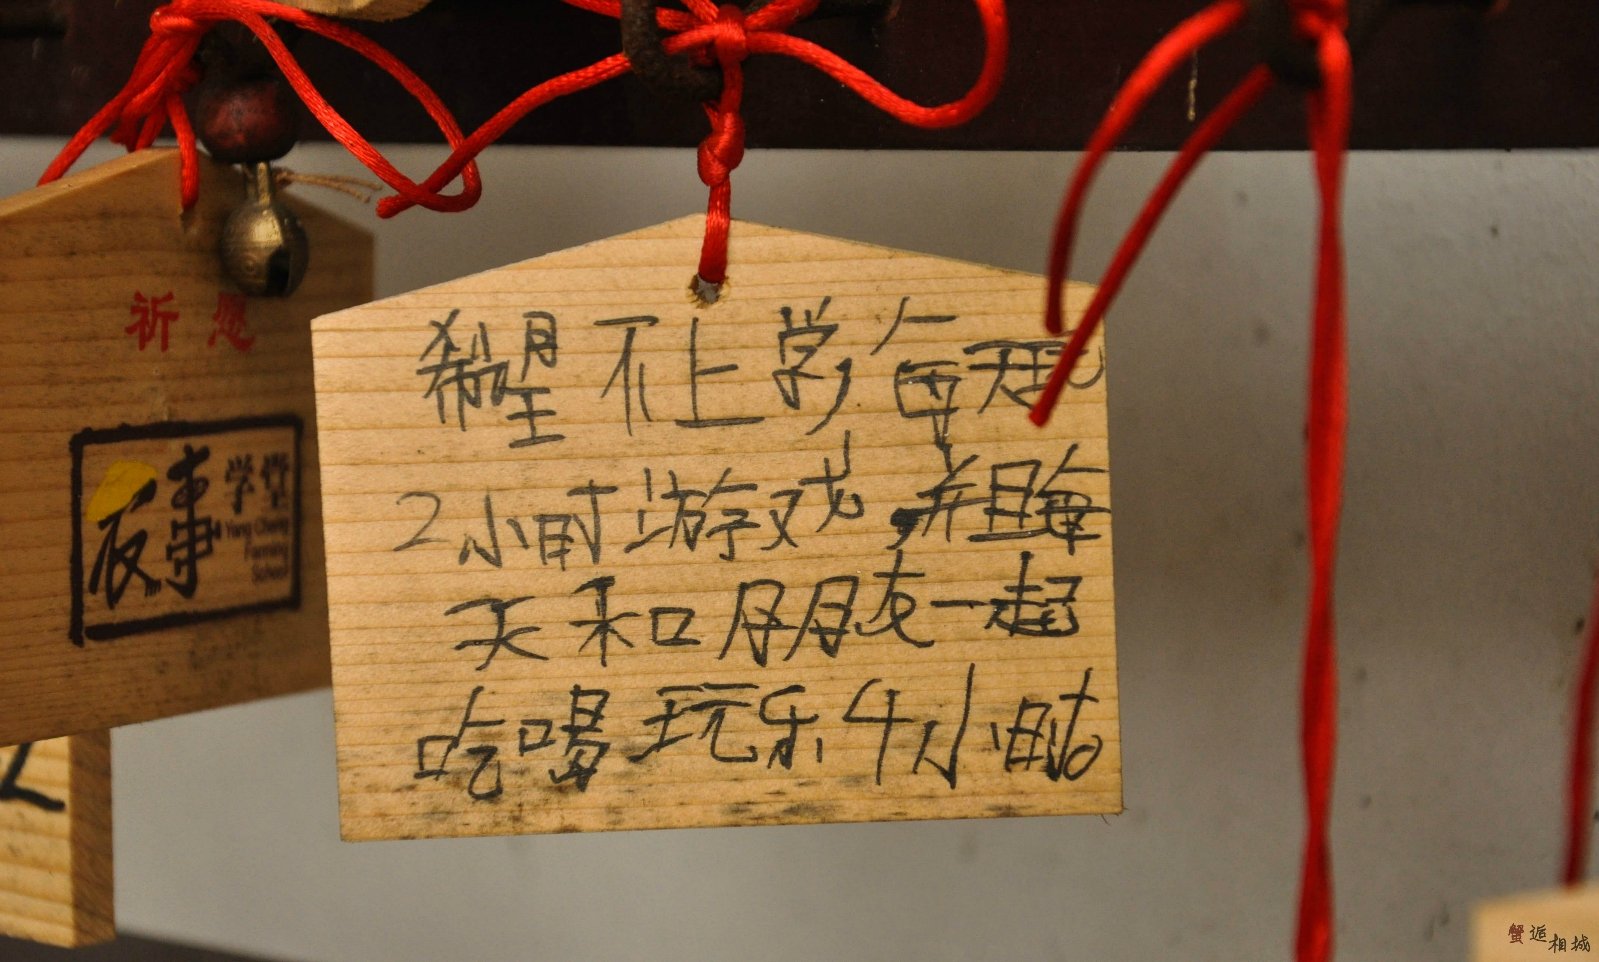 希望不上学,每天玩
2小时游戏,并且每
天和朋友一起
吃喝玩乐4小时
祈愿
农事学堂
Yang Cheng
Farming
School
蟹逅相城